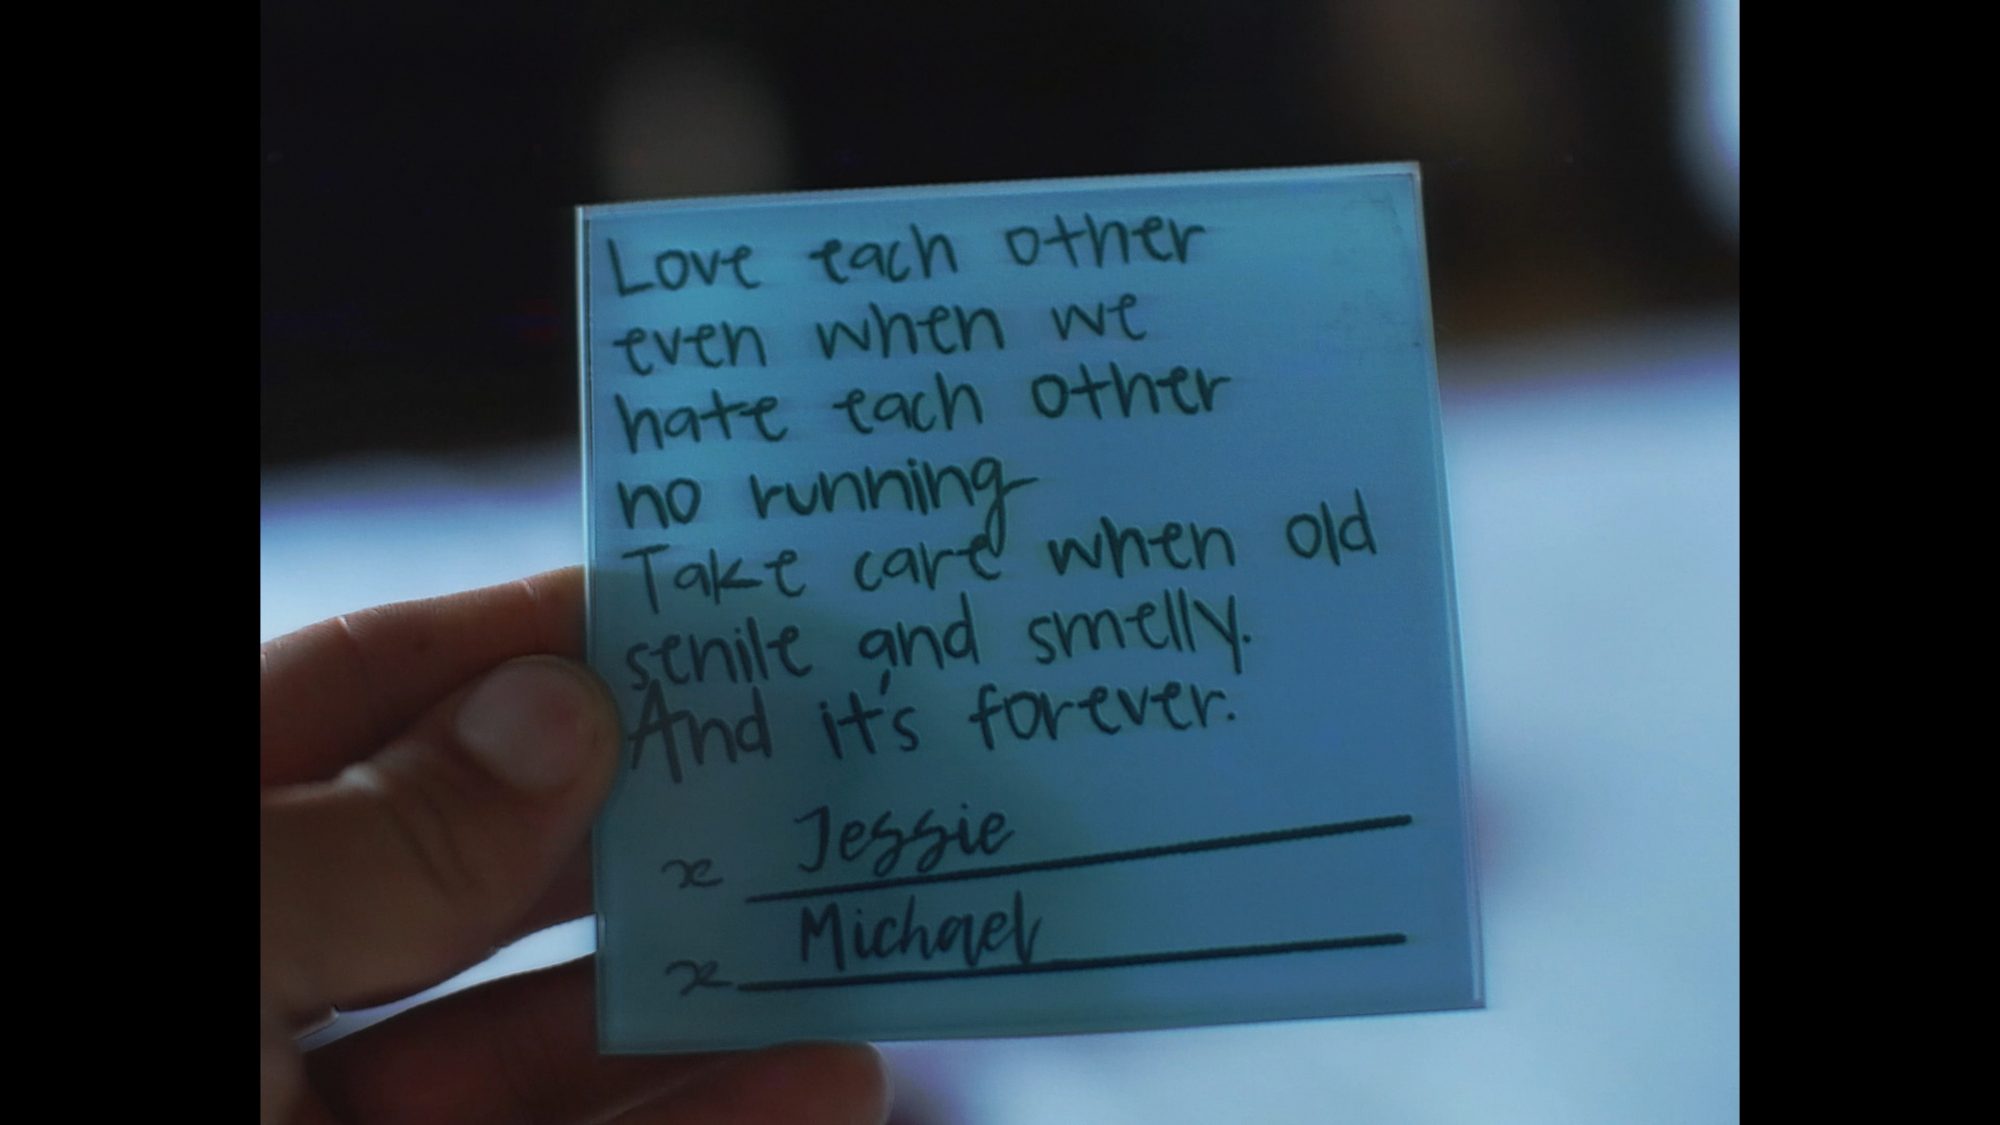 Love each other
even when we
hate each other
no running
Take care when old
senile and smelly.
And it's forever.
x Jessie
x Michael